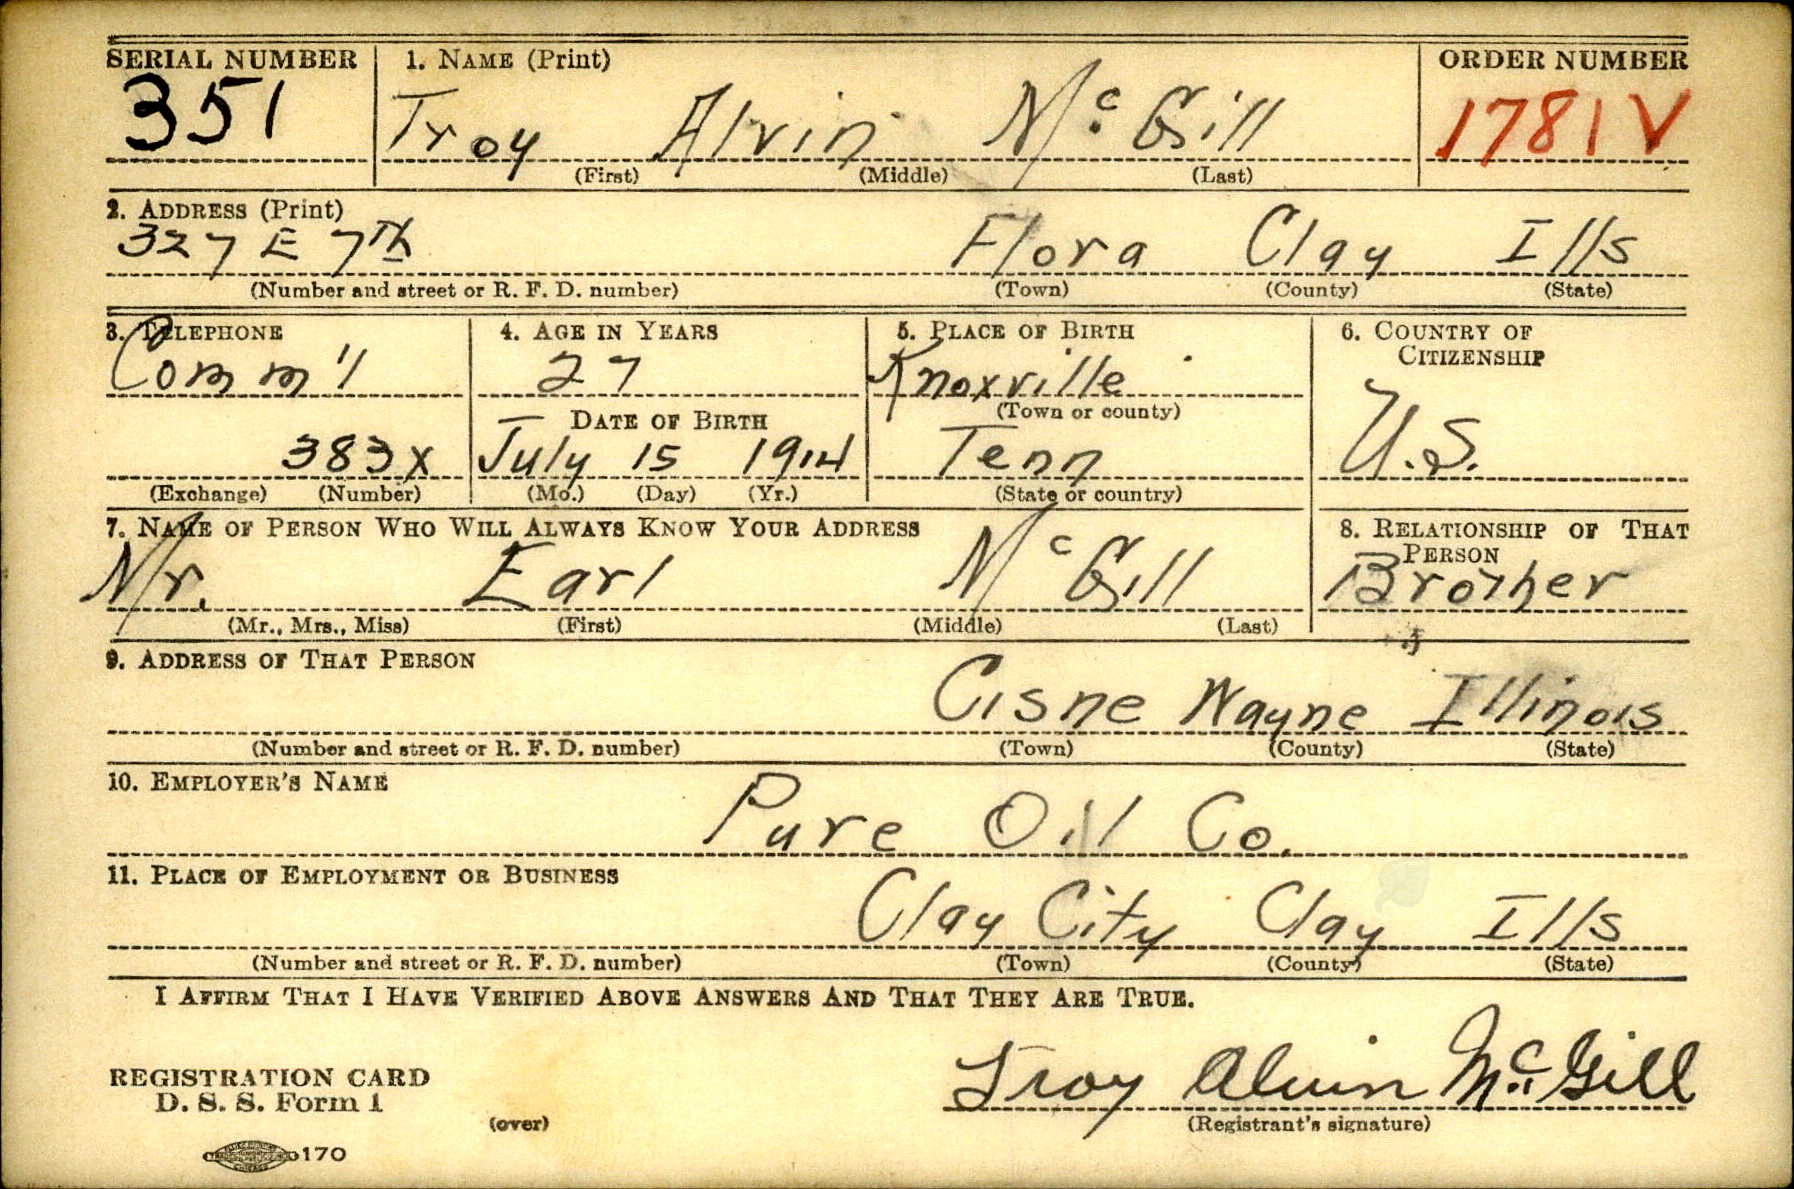 SERIAL NUMBER 1. NAME (Print) ORDER NUMBER
351 Troy Alvin McGill 1781 V
(First) (Middle) (Last)
2. ADDRESS (Print)
327 E 7th Flora Clay Ills
(Number and street or R. F. D. number) (Town) (County) (State)
3. TELEPHONE 4. AGE IN YEARS 5. PLACE OF BIRTH 6. COUNTRY OF
CITIZENSHIP
Comm'l 27 Knoxville
DATE OF BIRTH (Town or county)
383X July 15 1914 Tenn U.S.
(Exchange) (Number) (Mo.) (Day) (Yr.) (State or country)
7. NAME OF PERSON WHO WILL ALWAYS KNOW YOUR ADDRESS 8. RELATIONSHIP OF THAT
PERSON
Mr. Earl McGill Brother
(Mr., Mrs., Miss) (First) (Middle) (Last)
9. ADDRESS OF THAT PERSON
Cisne Wayne Illinois
(Number and street or R. F. D. number) (Town) (County) (State)
10. EMPLOYER'S NAME
Pure Oil Co.
11. PLACE OF EMPLOYMENT OR BUSINESS
Clay City Clay Ills
(Number and street or R. F. D. number) (Town) (County) (State)
I AFFIRM THAT I HAVE VERIFIED ABOVE ANSWERS AND THAT THEY ARE TRUE.
REGISTRATION CARD
D. S. S. Form 1
Troy Alvin McGill
(over) (Registrant's signature)
170